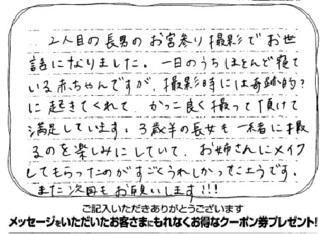 2人目の長男のお宮参り撮影でお世
話になりました。一日のうちほとんど寝て
いる赤ちゃんですが、撮影時には奇跡的?
に起きてくれて、かっこ良く撮って頂けて
満足しています。3歳半の長女も一緒に撮
るのを楽しみにしていて、お姉さんにメイク
してもらったのがすごくうれしかったようです。
また次回もお願いします!!!
ご記入いただきありがとうございます
メッセージをいただいたお客さまにもれなくお得なクーポン券プレゼント!